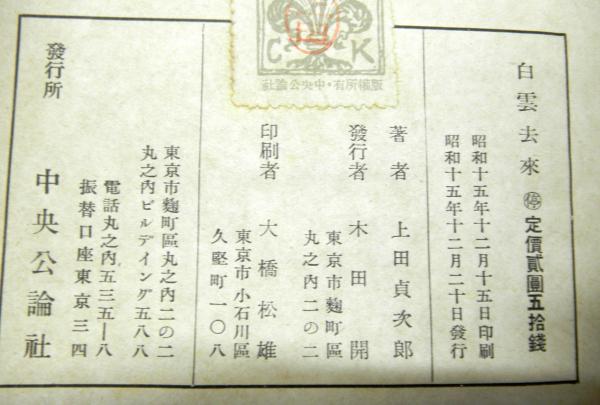 白雲去來 ㊡ 定價貳圓五拾錢
昭和十五年十二月十五日印刷
昭和十五年十二月二十日發行
著者 上田貞次郎
發行者 木田開
東京市麴町區
丸之內二の二
印刷者 大橋松雄
東京市小石川區
久堅町一〇八
CK
版權所有・中央公論社
發行所
東京市麴町區丸之內二の二
丸之內ビルデイング五八八
電話丸之內五三五一八
振替口座東京三四
中央公論社